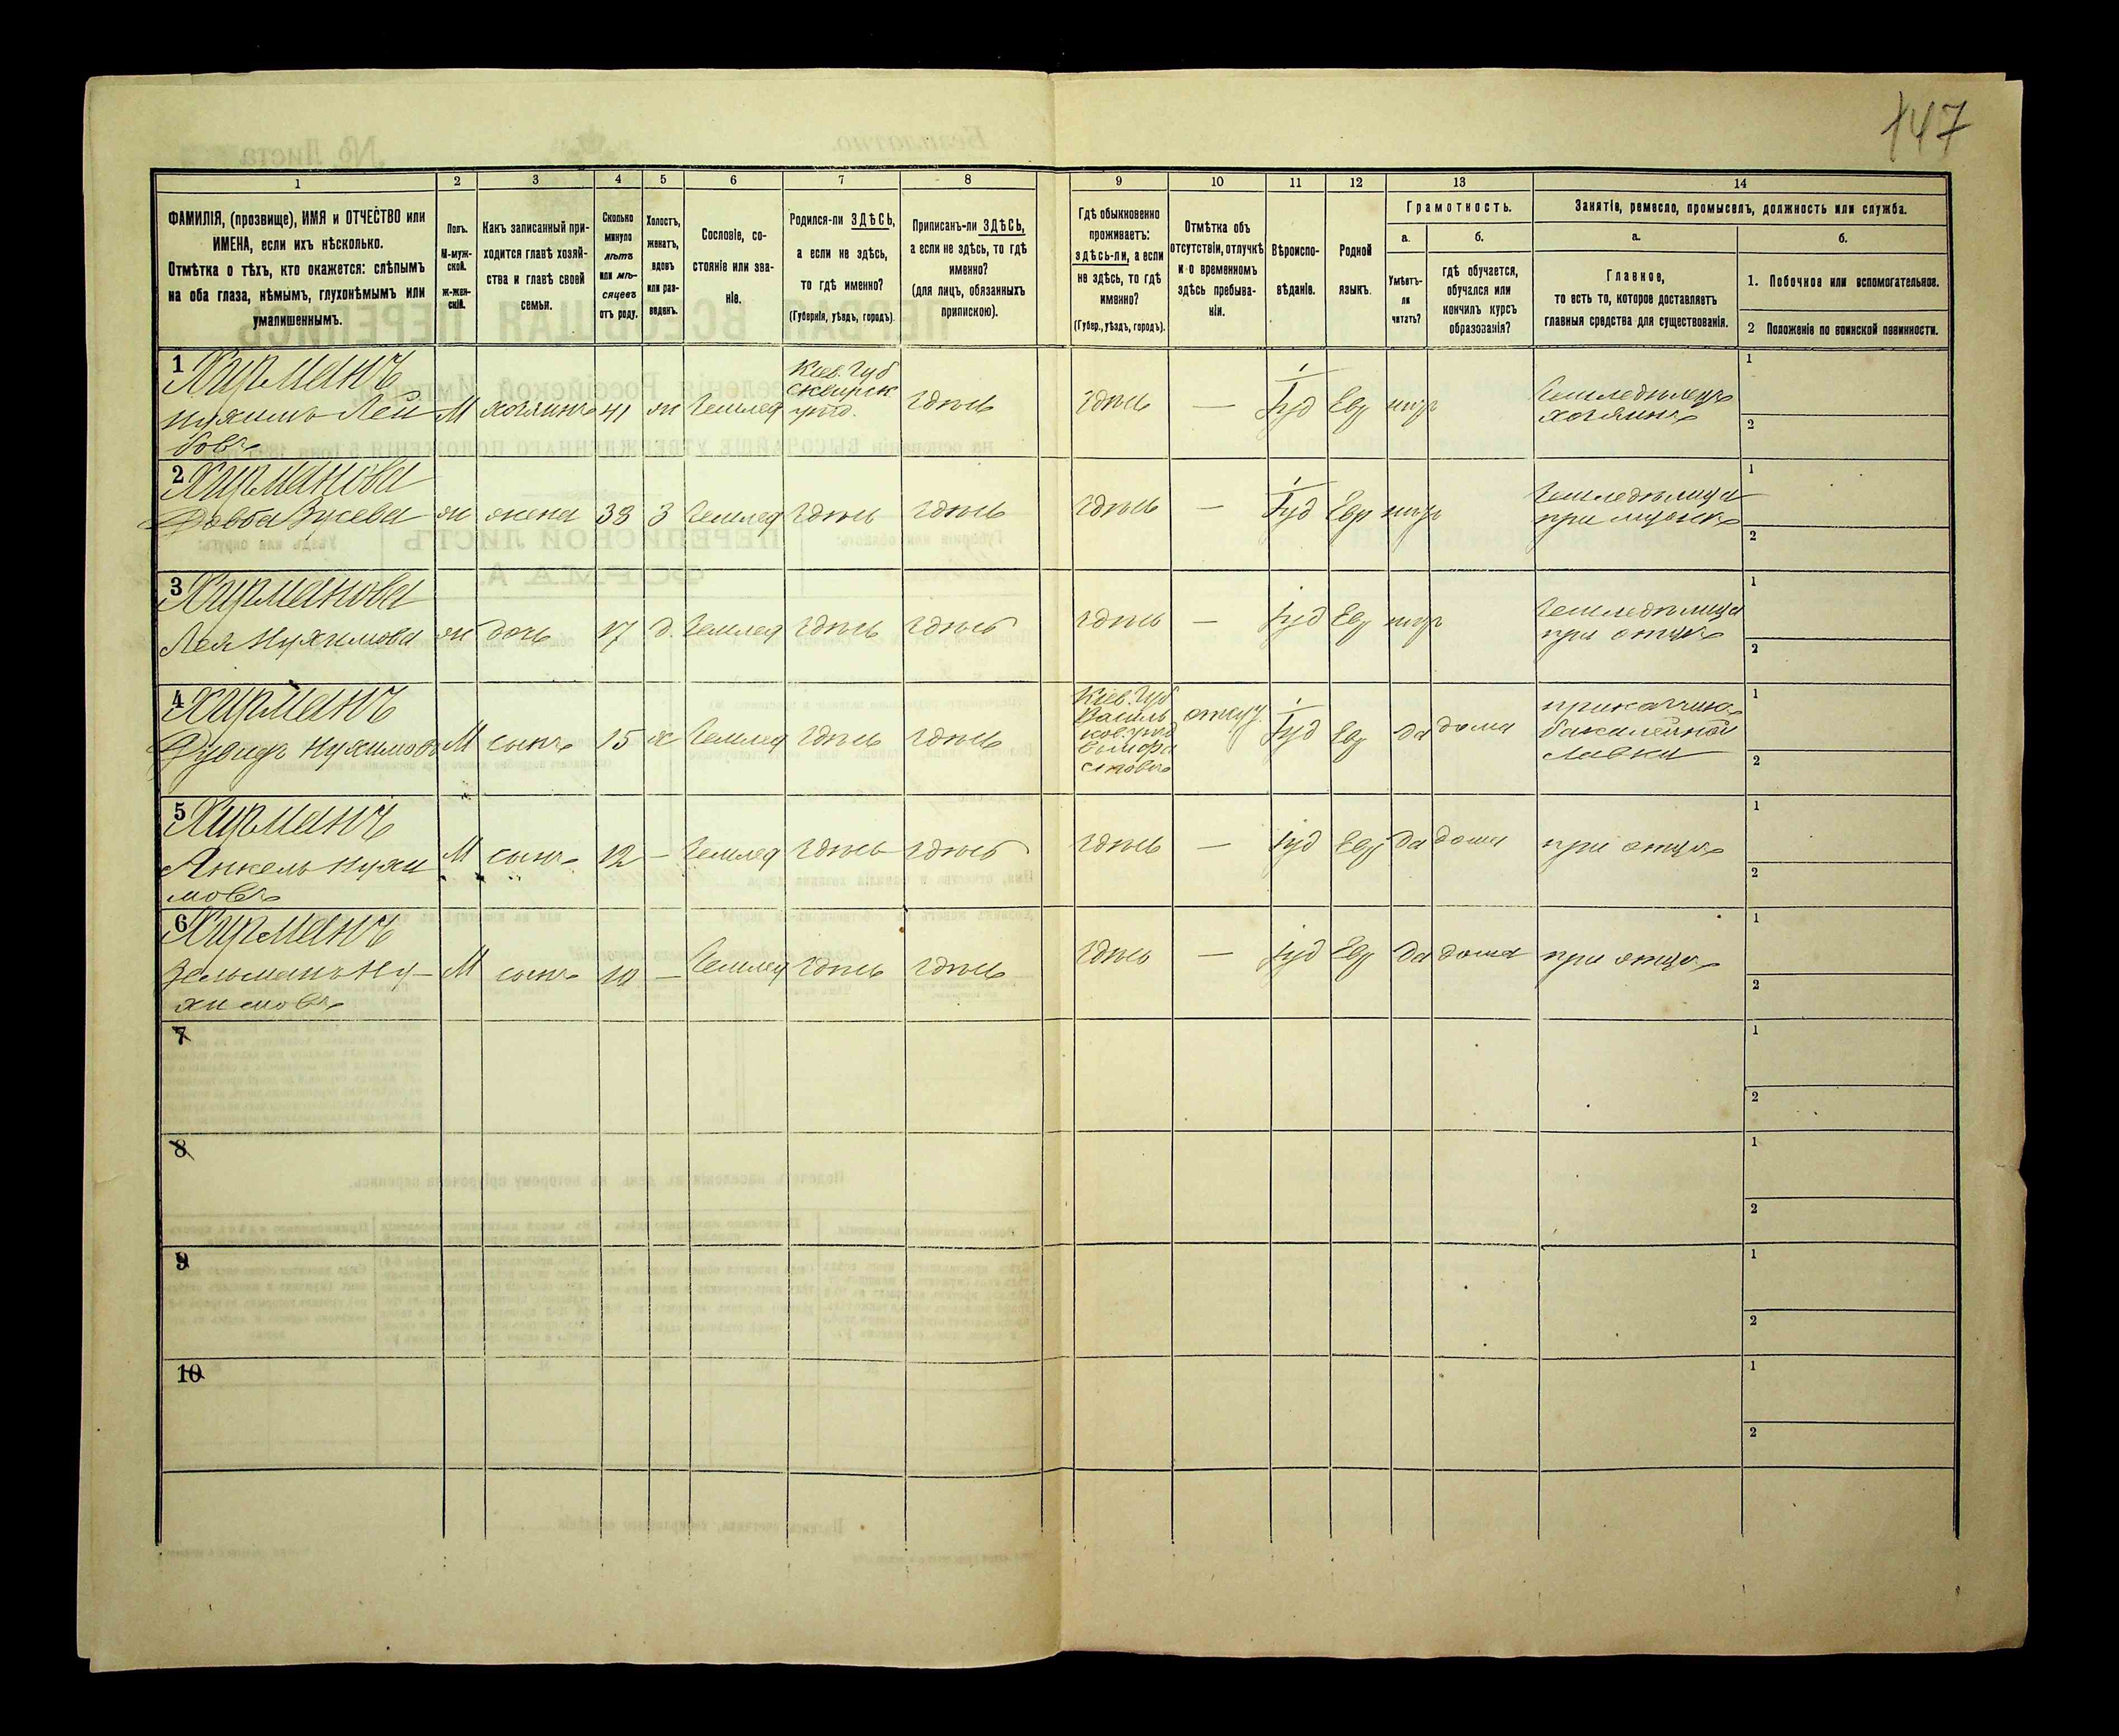 147
1 2 3 4 5 6 7 8 9 10 11 12 13 14
ФАМИЛІЯ, (прозвище), ИМЯ и ОТЧЕСТВО или
ИМЕНА, если ихъ нѣсколько.
Отмѣтка о тѣхъ, кто окажется: слѣпымъ
на оба глаза, нѣмымъ, глухонѣмымъ или
умалишеннымъ.
Полъ.
М-муж-
ской.
Ж-жен-
скій.
Какъ записанный при-
ходится главѣ хозяй-
ства и главѣ своей
семьи.
Сколько
минуло
лѣтъ
или мѣ-
сяцевъ
отъ роду.
Холостъ,
женатъ,
вдовъ
или раз-
веденъ.
Сословіе, со-
стояніе или зва-
ніе.
Родился-ли ЗДѢСЬ,
а если не здѣсь,
то гдѣ именно?
(Губернія, уѣздъ, городъ).
Приписанъ-ли ЗДѢСЬ,
а если не здѣсь, то гдѣ
именно?
(для лицъ, обязанныхъ
припискою).
Гдѣ обыкновенно
проживаетъ:
здѣсь-ли, а если
не здѣсь, то гдѣ
именно?
(Губер., уѣздъ, городъ).
Отмѣтка объ
отсутствіи, отлучкѣ
и о временномъ
здѣсь пребыва-
ніи.
Вѣроиспо-
вѣданіе.
Родной
языкъ.
Грамотность.
а.
Умѣетъ-
ли
читать?
б.
гдѣ обучается,
обучался или
кончилъ курсъ
образованія?
Занятіе, ремесло, промыселъ, должность или служба.
а.
Главное,
то есть то, которое доставляетъ
главныя средства для существованія.
б.
1. Побочное или вспомогательное.
2 Положеніе по воинской повинности.
1 Хурманъ
Нухимъ Лей
бовъ
М хозяинъ 41 ж Землед
Кіев. Губ
Сквирск
уѣзд.
здѣсь здѣсь — Іуд Евр
Земледѣлецъ
хозяинъ
1
2
2 Хурманова
Зусева ж жена 38 З Землед здѣсь здѣсь здѣсь — Іуд Евр
Земледѣлица
при мужѣ
1
2
3 Хурманова
Лея Нухимова ж дочь 17 д. Землед здѣсь здѣсь здѣсь — Іуд Евр
Земледѣлица
при отцѣ
1
2
4 Хурманъ
Нухимовъ М сынъ 15 х Землед здѣсь здѣсь
Кіев. Губ
Василь
ков. уѣзд
отлуч. Іуд Евр да дома
прикащикъ
бакалейной
лавки
1
2
5 Хурманъ
Янкель Нухи
мовъ
М сынъ 12 — Землед здѣсь здѣсь здѣсь — Іуд Евр да дома при отцѣ
1
2
6 Хурманъ
Зельманъ Ну-
химовъ
М сынъ 10 — Землед здѣсь здѣсь здѣсь — Іуд Евр да дома при отцѣ
1
2
7
1
2
8
1
2
9
1
2
10
1
2